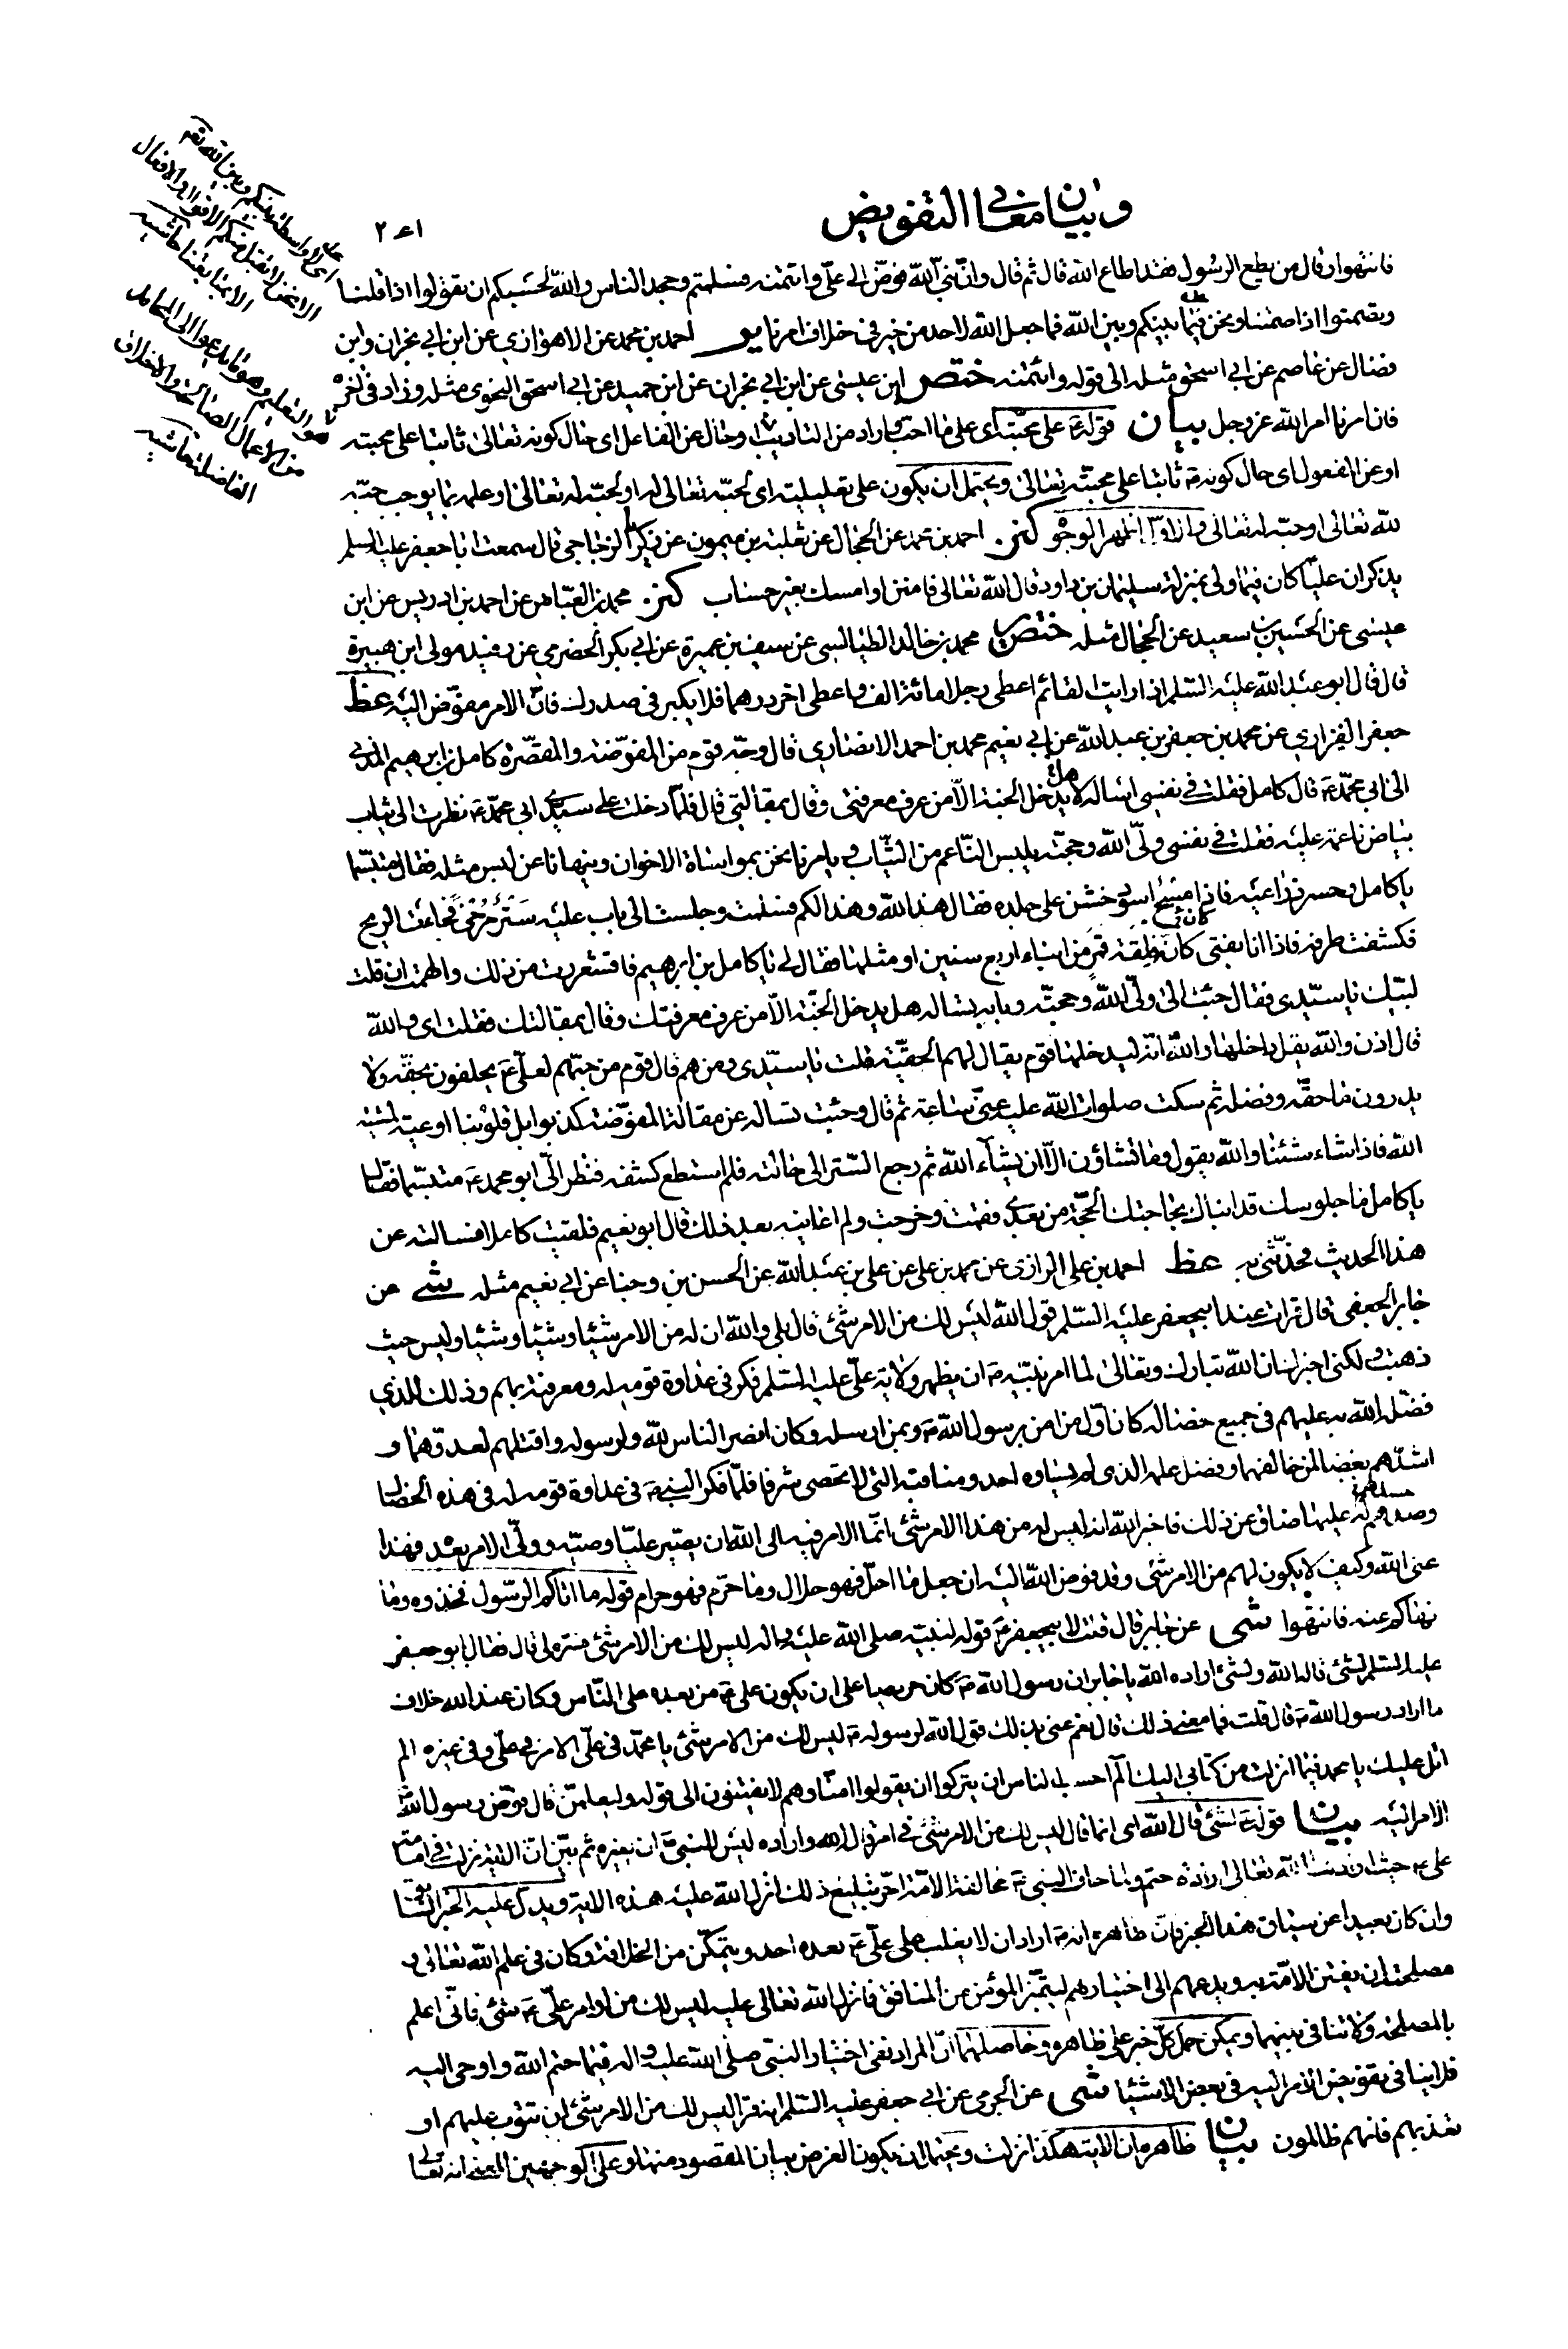 وبيان معاني التفويض
فانتهوا وقال من يطع الرسول فقد اطاع الله قال ثم قال وان نبي الله فوض الى علي وائتمنه فسلمتم وجحد الناس والله لحسبكم ان تقولوا اذا قلنا
وتصمتوا اذا صمتنا ونحن فيما بينكم وبين الله فما جعل الله لاحد من خير في خلاف امرنا ير احمد بن محمد عن الاهوازي عن ابن ابي نجران وابن
فضال عن عاصم عن ابي اسحق مثله الى قوله وائتمنه ختص ابن عيسى عن ابن ابي نجران عن ابن حميد عن ابي اسحق النحوي مثله وزاد في اخره
فان امرنا امر الله عز وجل بيان قوله ع على محبته اى على ما احب واراد من التاديب او حال عن الفاعل اى حال كونه تعالى ثابتا على محبته
او عن المفعول اى حال كونه ص ثابتا على محبته تعالى ويحتمل ان يكون على تعليلية اى لحبه تعالى له او لحبه له تعالى او علمه بما يوجب حبه
لله تعالى او حبه له تعالى اظهر الوجوه كنز احمد بن محمد عن الحجال عن ثعلبة بن ميمون عن زكريا الزجاجي قال سمعت ابا جعفر عليه السلم
يذكر ان عليا كان فيما ولي بمنزلة سليمان بن داود قال الله تعالى فامنن او امسك بغير حساب كنز محمد بن العباس عن احمد بن ادريس عن ابن
عيسى عن الحسين بن سعيد عن الحجال مثله ختص محمد بن خالد الطيالسي عن سيف بن عميرة عن ابي بكر الحضرمي عن رفيد مولى ابن هبيرة
قال قال ابو عبد الله عليه السلم اذا رايت القائم اعطى رجلا مائة الف واعطى اخر درهما فلا يكبر في صدرك فان الامر مفوض اليه غط
جعفر الفزاري عن محمد بن جعفر بن عبد الله عن ابي نعيم محمد بن احمد الانصاري قال وجه قوم من المفوضة والمقصرة كامل بن ابرهيم المدني
الى ابي محمد ع قال كامل فقلت في نفسي اساله لا يدخل الجنة الا من عرف معرفتي وقال بمقالتي قال فلما دخلت على سيدي ابي محمد ع نظرت الى ثياب
بياض ناعمة عليه فقلت في نفسي ولي الله وحجته يلبس الناعم من الثياب ويامرنا نحن بمواساة الاخوان وينهانا عن لبس مثله فقال متبسما
يا كامل وحسر ذراعيه فاذا مسح اسود خشن على جلده فقال هذا لله وهذا لكم فسلمت وجلست الى باب عليه ستر مرخى فجاءت الريح
فكشفت طرفه فاذا انا بفتى كانه فلقة قمر من ابناء اربع سنين او مثلها فقال لي يا كامل بن ابرهيم فاقشعررت من ذلك والهمت ان قلت
لبيك يا سيدي فقال جئت الى ولي الله وحجته وبابه تساله هل يدخل الجنة الا من عرف معرفتك وقال بمقالتك فقلت اى والله
قال اذن والله يقل داخلها والله انه ليدخلها قوم يقال لهم الحقية قلت يا سيدي ومن هم قال قوم من حبهم لعلي ع يحلفون بحقه ولا
يدرون ما حقه وفضله ثم سكت صلوات الله عليه عني ساعة ثم قال وجئت تساله عن مقالة المفوضة كذبوا بل قلوبنا اوعية لمشية
الله فاذا شاء شئنا والله يقول وما تشاؤن الا ان يشآء الله ثم رجع الستر الى حالته فلم استطع كشفه فنظر الي ابو محمد ع متبسما فقال
يا كامل ما جلوسك قد انباك بحاجتك الحجة من بعدي فقمت وخرجت ولم اعاينه بعد ذلك قال ابو نعيم فلقيت كاملا فسالته عن
هذا الحديث فحدثني به غط احمد بن علي الرازي عن محمد بن علي عن علي بن عبد الله عن الحسن بن وجنا عن ابي نعيم مثله شى عن
جابر الجعفي قال قرات عند ابيجعفر عليه السلم قول الله ليس لك من الامر شئ قال بلى والله ان له من الامر شيئا وشيئا وشيئا وليس حيث
ذهبت ولكني اخبرك ان الله تبارك وتعالى لما امر نبيه ص ان يظهر ولاية علي عليه السلم فكر في عداوة قومه له ومعرفته بهم وذلك للذي
فضله الله به عليهم في جميع خصاله كان اول من امن برسول الله ص وبمن ارسله وكان انصر الناس لله ولرسوله واقتلهم لعدوهما و
اشدهم بغضا لمن خالفهما وفضل علمه الذي لم يساوه احد ومناقبه التي لا تحصى شرفا فلما فكر النبي ص في عداوة قومه له في هذه الخصال
وحسدهم له عليها ضاق عن ذلك فاخبر الله انه ليس له من هذا الامر شئ انما الامر فيه الى الله ان يصير عليا وصيه وولي الامر بعده فهذا
عنى الله وكيف لا يكون لهم من الامر شئ وقد فوض الله اليه ان جعل ما احل فهو حلال وما حرم فهو حرام قوله ما اتاكم الرسول فخذوه وما
نهاكم عنه فانتهوا شى عن جابر قال قلت لابيجعفر ع قوله لنبيه صلى الله عليه واله ليس لك من الامر شئ فسره لي قال فقال ابو جعفر
عليه السلم لشئ قاله الله ولشئ اراده الله يا جابر ان رسول الله ص كان حريصا على ان يكون علي ع من بعده على الناس وكان عند الله خلاف
ما اراد رسول الله ص قال قلت فما معنى ذلك قال نعم عنى بذلك قول الله لرسوله ص ليس لك من الامر شئ يا محمد في علي الامر في علي وفي غيره الم
اتل عليك يا محمد فيما انزلت من كتابي اليك الم احسب الناس ان يتركوا ان يقولوا امنا وهم لا يفتنون الى قوله وليعلمن قال فوض رسول الله ص
الامر اليه بيان قوله ع لشئ قال الله اى انما قال ليس لك من الامر شئ في امر قال الله واراده ليس للنبي ص ان يغيره ثم بين ان الاية نزلت في امامة
علي ع حيث الله تعالى اراده حتم ولما خاف النبي ص مخالفة الامة اخر تبليغ ذلك انزل الله عليه هذه الاية ويدل عليه الخبر السابق
وان كان بعيدا عن سياق هذا الخبر فان ظاهره انه ص اراد ان لا يغلب على علي ع بعده احد ويتمكن من الخلافة وكان في علم الله تعالى و
مصلحته ان يفتن الامة به ويدعهم الى اختيارهم ليتميز المؤمن من المنافق فانزل الله تعالى عليه ليس لك من اوامر علي ع شئ فاني اعلم
بالمصلحة ولا تنافى بينهما ويمكن حمل كل خبر على ظاهره وحاصلهما ان المراد نفي اختيار النبي صلى الله عليه واله فيما حتم الله واوحى اليه
فلا ينافى تفويض الامر اليه في بعض الاشيا شى عن الجرمي عن ابي جعفر عليه السلم انه قرا ليس لك من الامر شئ ان تتوب عليهم او
تعذبهم فانهم ظالمون بيان ظاهره ان الاية هكذا نزلت ويحتمل ان يكون الغرض بيان المقصود منها وعلى الوجهين المعنى انه تعالى
٢٤١
اى لا واسطة بينكم وبين الله تعه
الا نحن لا نقبل منكم الاقوال والافعال
الا بمتابعتنا حاشيه
هو التعليم وهو ما يدعو الى المحامد
من الاعمال الصالحة والاخلاق
الفاضلة حاشيه